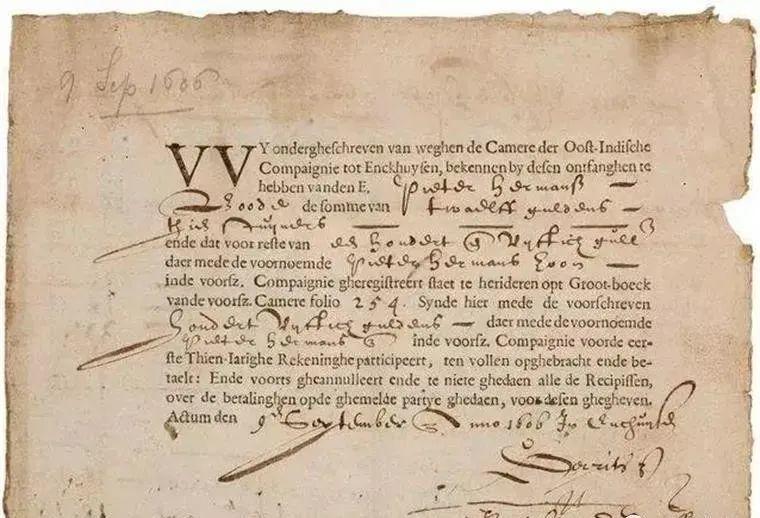 9 Sep 1606
WY ondergheschreven van weghen de Camere der Oost-Indische
Compaignie tot Enckhuysen, bekennen by desen ontfanghen te
hebben vanden E. Pieter Hermansz
de somme van twaelff guldens
thien stuyvers
ende dat voor reste van hondert vijftich
daer mede de voornoemde Pieter Hermans zoon
inde voorsz. Compaignie gheregistreert staet te herideren opt Groot-boeck
vande voorsz. Camere folio 254. Synde hier mede de voorschreven
hondert vijftich guldens daer mede de voornoemde
Pieter Hermans inde voorsz. Compaignie voorde eer-
ste Thien-Iarighe Rekeninghe participeert, ten vollen opghebracht ende be-
taelt: Ende voorts gheannulleert ende te niete ghedaen alle de Recipissen,
over de betalinghen opde ghemelde partye ghedaen, voor desen ghegheven.
Actum den 9 September Anno 1606